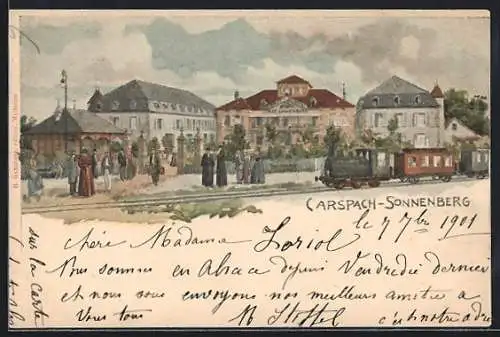 CARSPACH-SONNENBERG
le 7 7bre 1901
chère Madame Loriol
Nous sommes en Alsace depuis Vendredie dernier
et nous vous envoyons nos meilleurs amitiés a
Vous tous
c'est notre adre
sur la carte